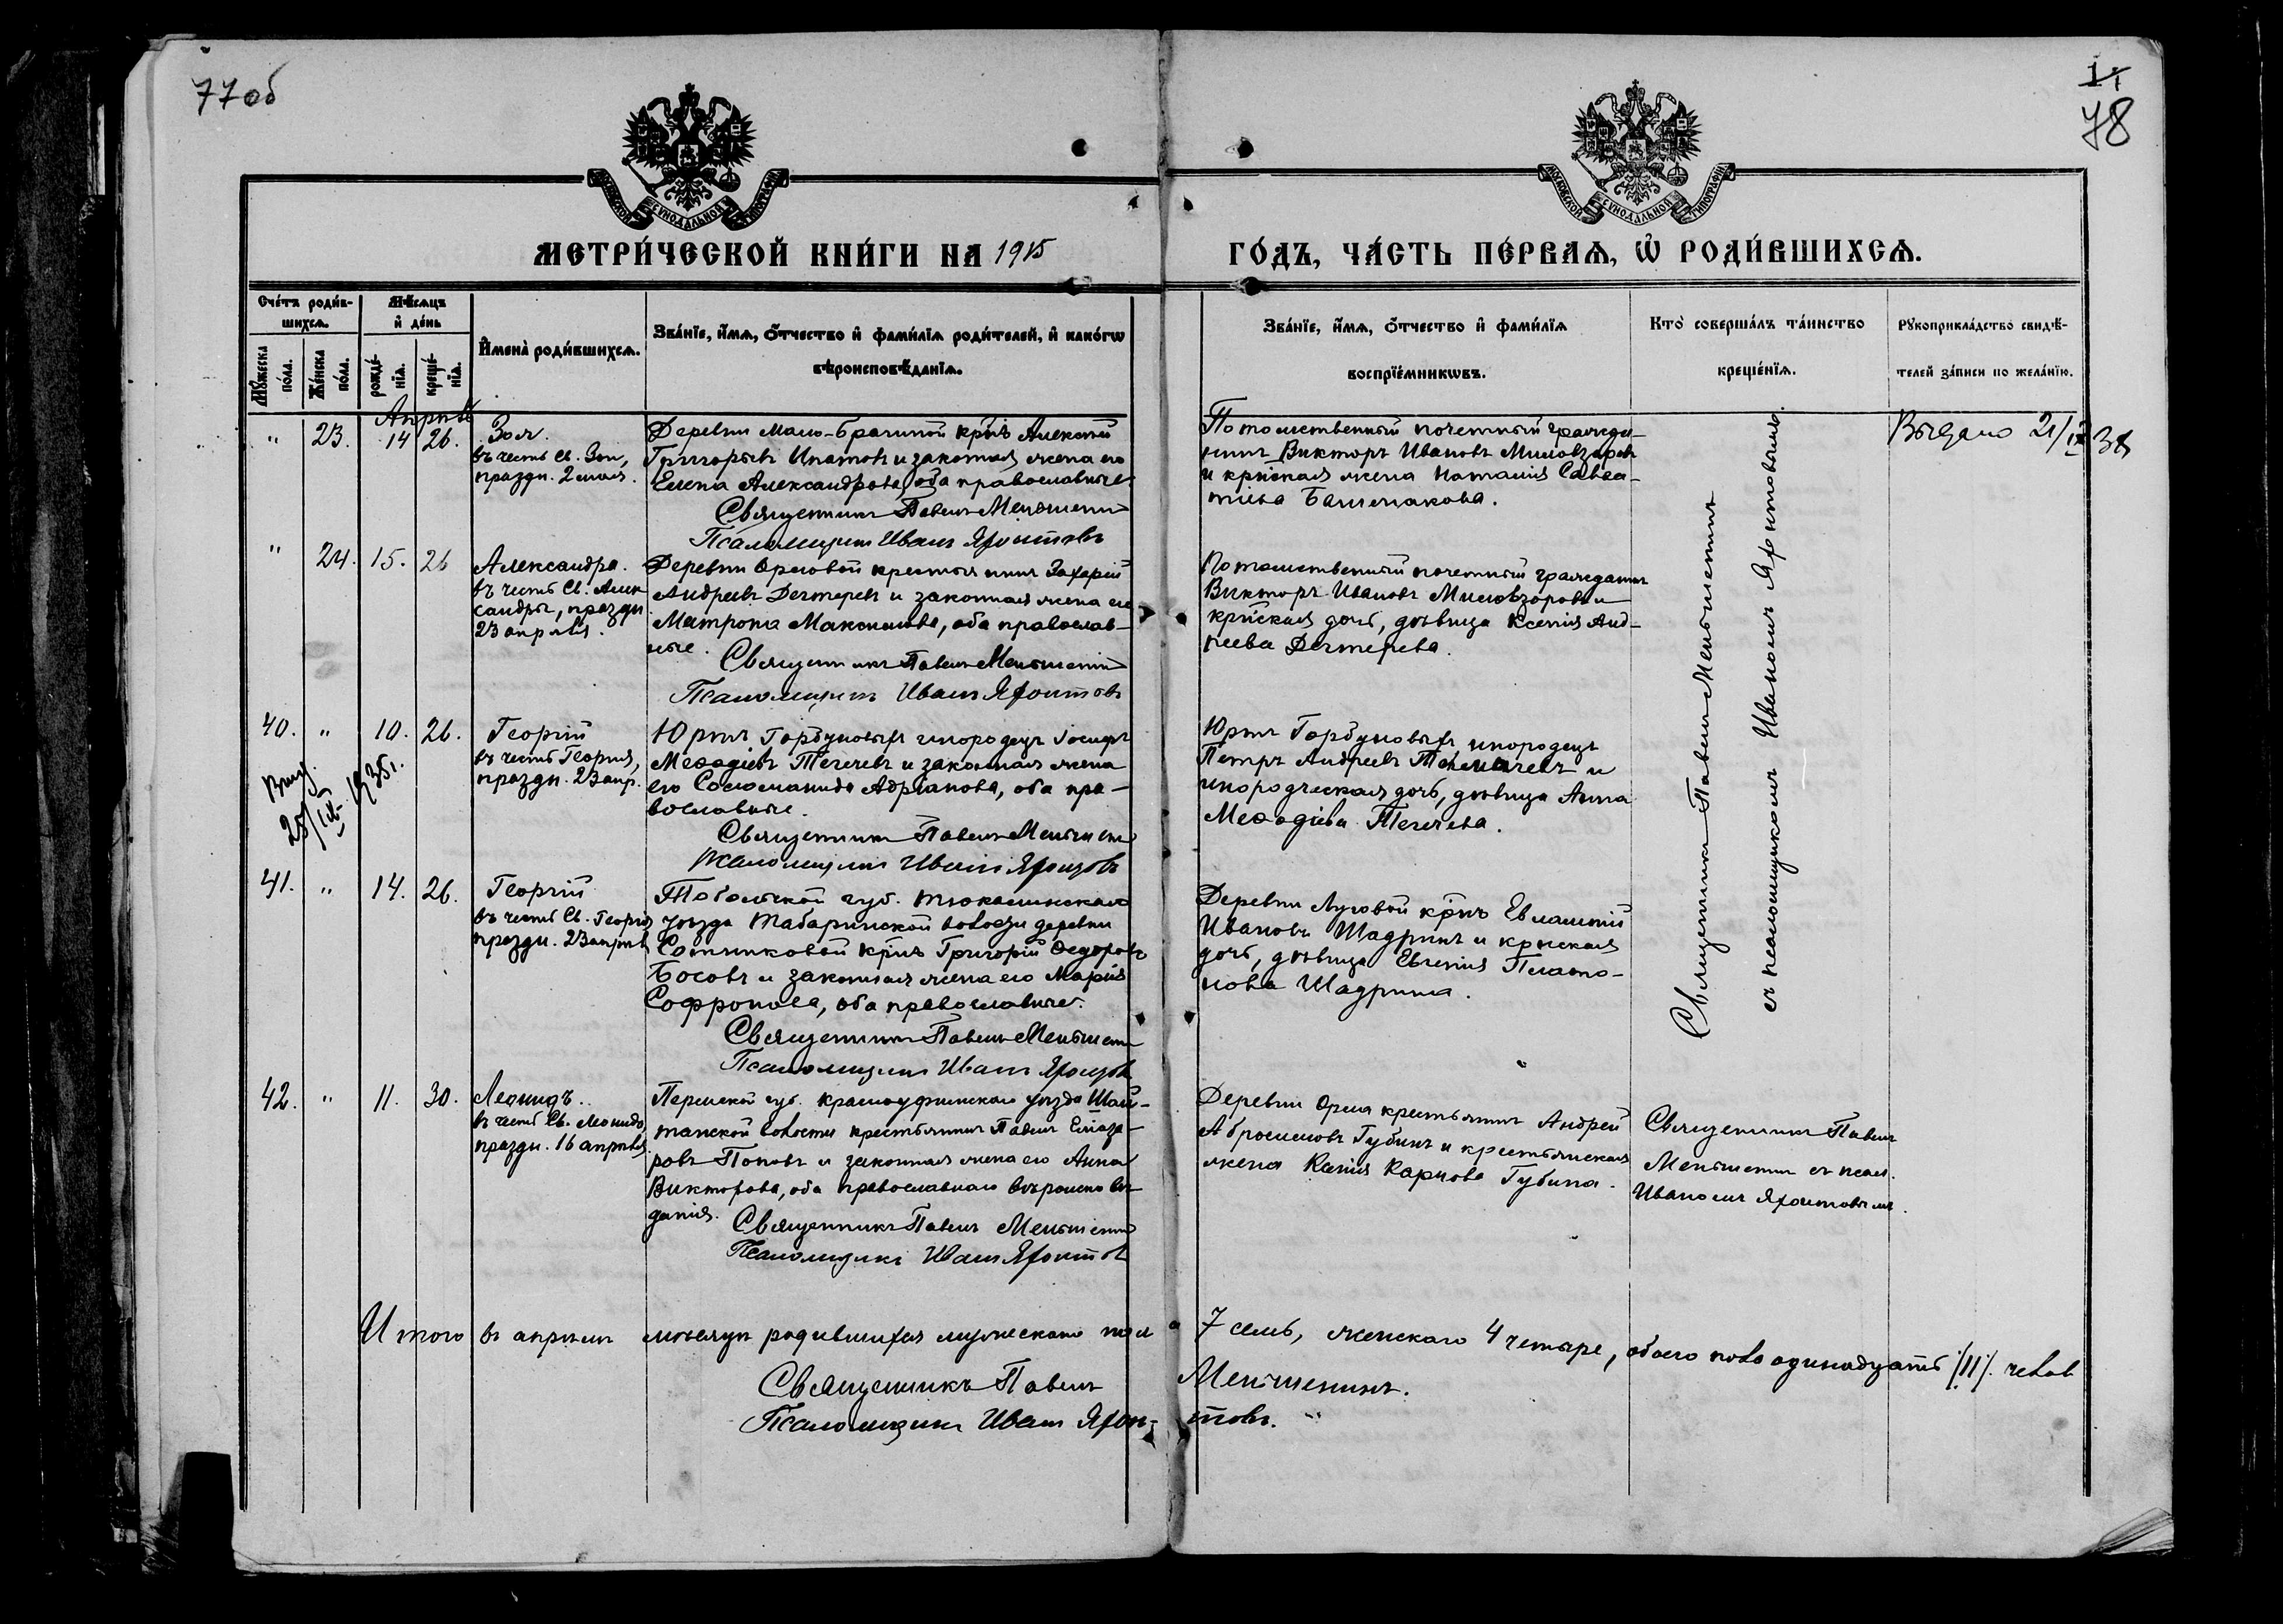 77об
1
78
МОСКОВСКОЙ СѴНОДАЛЬНОЙ ТИПОГРАФІИ
МОСКОВСКОЙ СѴНОДАЛЬНОЙ ТИПОГРАФІИ
МЕТРИ́ЧЕСКОЙ КНИ́ГИ НА 1915
ГО́ДЪ, ЧА́СТЬ ПЕ́РВАѦ, Ѽ РОДИ́ВШИХСѦ.
Сче́тъ роди́в-
шихсѧ.
Мѣ́сѧцъ
и҆ де́нь
Мꙋ́жеска по́ла.
Же́нска по́ла.
рожде́-
нїѧ.
креще́-
нїѧ.
И҆мена̀ роди́вшихсѧ.
Зва́нїе, и҆́мѧ, ѻ҆́тчество и҆ фами́лїѧ роди́телей, и҆ како́гѡ
вѣроисповѣ́данїѧ.
Зва́нїе, и҆́мѧ, ѻ҆́тчество и҆ фами́лїѧ
воспрїе́мникѡвъ.
Кто̀ соверша́лъ та́инство
креще́нїѧ.
Рꙋкоприкла́дство свидѣ́-
телей за́писи по жела́нїю.
Апрѣль
" 23. 14 26. Зоя.
въ честь св. Зои,
праздн. 2 мая.
Деревни Мало-Брагиной крнъ Алексѣй
Григорьевъ Ипатовъ и законная жена его
Елена Александрова, оба православные
Священникъ Павелъ Меньшенинъ
Псаломщикъ Иванъ Яфонтовъ
Потомственный почетный гражда-
нинъ Викторъ Ивановъ Миловзоровъ
и крнская жена Наталія Савва-
тіева Башмакова.
Выдано 21/IX 38
" 24. 15. 26 Александра.
въ честь Св. Алек
сандры, праздн
23 апрѣля.
Деревни Орловой крестьянинъ Захарій
Андреевъ Дегтеревъ и законная жена его
Матрона Максимова, оба православ-
ные.
Священникъ Павелъ Меньшенинъ
Псаломщикъ Иванъ Яфонтовъ
Потомственный почетный гражданинъ
Викторъ Ивановъ Миловзоровъ и
крнская дочь, дѣвица Ксенія Анд-
реева Дегтерева.
40. " 10. 26. Георгій
въ честь Георгія,
праздн. 23 апр.
Выд.
25/IX 1935г.
Юртъ Горбуновыхъ инородецъ Іосифъ
Меѳодіевъ Тегечевъ и законная жена
его Соломанида Адріанова, оба пра-
вославные.
Священникъ Павелъ Меньшенинъ
Псаломщикъ Иванъ Яфонтовъ
Юртъ Горбуновыхъ инородецъ
Петръ Андреевъ и
инородческая дочь, дѣвица Анна
Меѳодіева Тегечева.
41. " 14. 26. Георгій
въ честь Св. Георгія
праздн. 23 апрѣля
Тобольской губ. Тюкалинскаго
уѣзда Табаринской волости деревни
Сотниковой крнъ Григорій Ѳедоровъ
Босовъ и законная жена его Марія
Софронова, оба православные.
Священникъ Павелъ Меньшенинъ
Псаломщикъ Иванъ Яфонтовъ
Деревни Луговой крнъ Евлампій
Ивановъ Шадринъ и крнская
дочь, дѣвица Евгенія Плато-
нова Шадрина.
Священникъ Павелъ Меньшенинъ
съ псаломщикомъ Иваномъ Яфонтовымъ.
42. " 11. 30. Леонидъ.
въ честь Св. Леонида
праздн. 16 апрѣля
Пермской губ. Красноуфимскаго уѣзда Шай-
танской волости крестьянинъ Павелъ Елеаза-
ровъ Поповъ и законная жена его Анна
Викторова, оба православнаго вѣроисповѣ-
данія.
Священникъ Павелъ Меньшенинъ
Псаломщикъ Иванъ Яфонтовъ
Деревни Орла крестьянинъ Андрей
Абросимовъ Губинъ и крестьянская
жена Ксенія Карпова Губина.
Священникъ Павелъ
Меньшенинъ съ псал.
Иваномъ Яфонтовымъ.
Итого въ апрѣлѣ мѣсяцѣ родившихся мужескаго пола 7 семь, женскаго 4 четыре, обоего пола одинадцать /11/ челов
Священникъ Павелъ Меньшенинъ.
Псаломщикъ Иванъ Яфон-товъ.